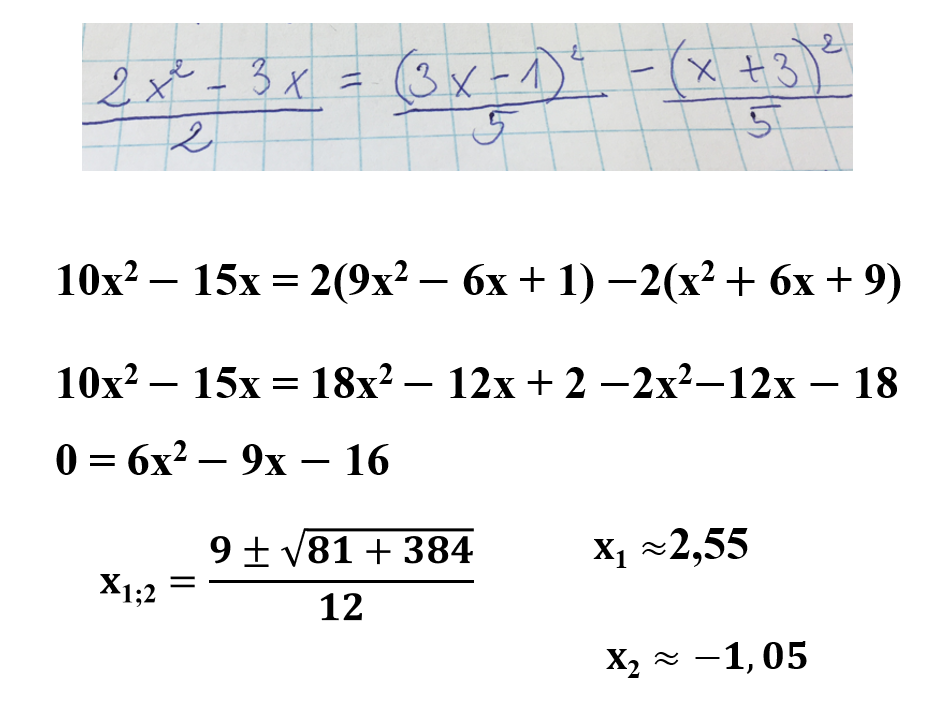 (2x² − 3x)/2 = (3x − 1)²/5 − (x + 3)²/5
10x² − 15x = 2(9x² − 6x + 1) −2(x² + 6x + 9)
10x² − 15x = 18x² − 12x + 2 −2x²−12x − 18
0 = 6x² − 9x − 16
x₁;₂ = (9 ± √(81 + 384))/12
x₁ ≈2,55
x₂ ≈ −1,05